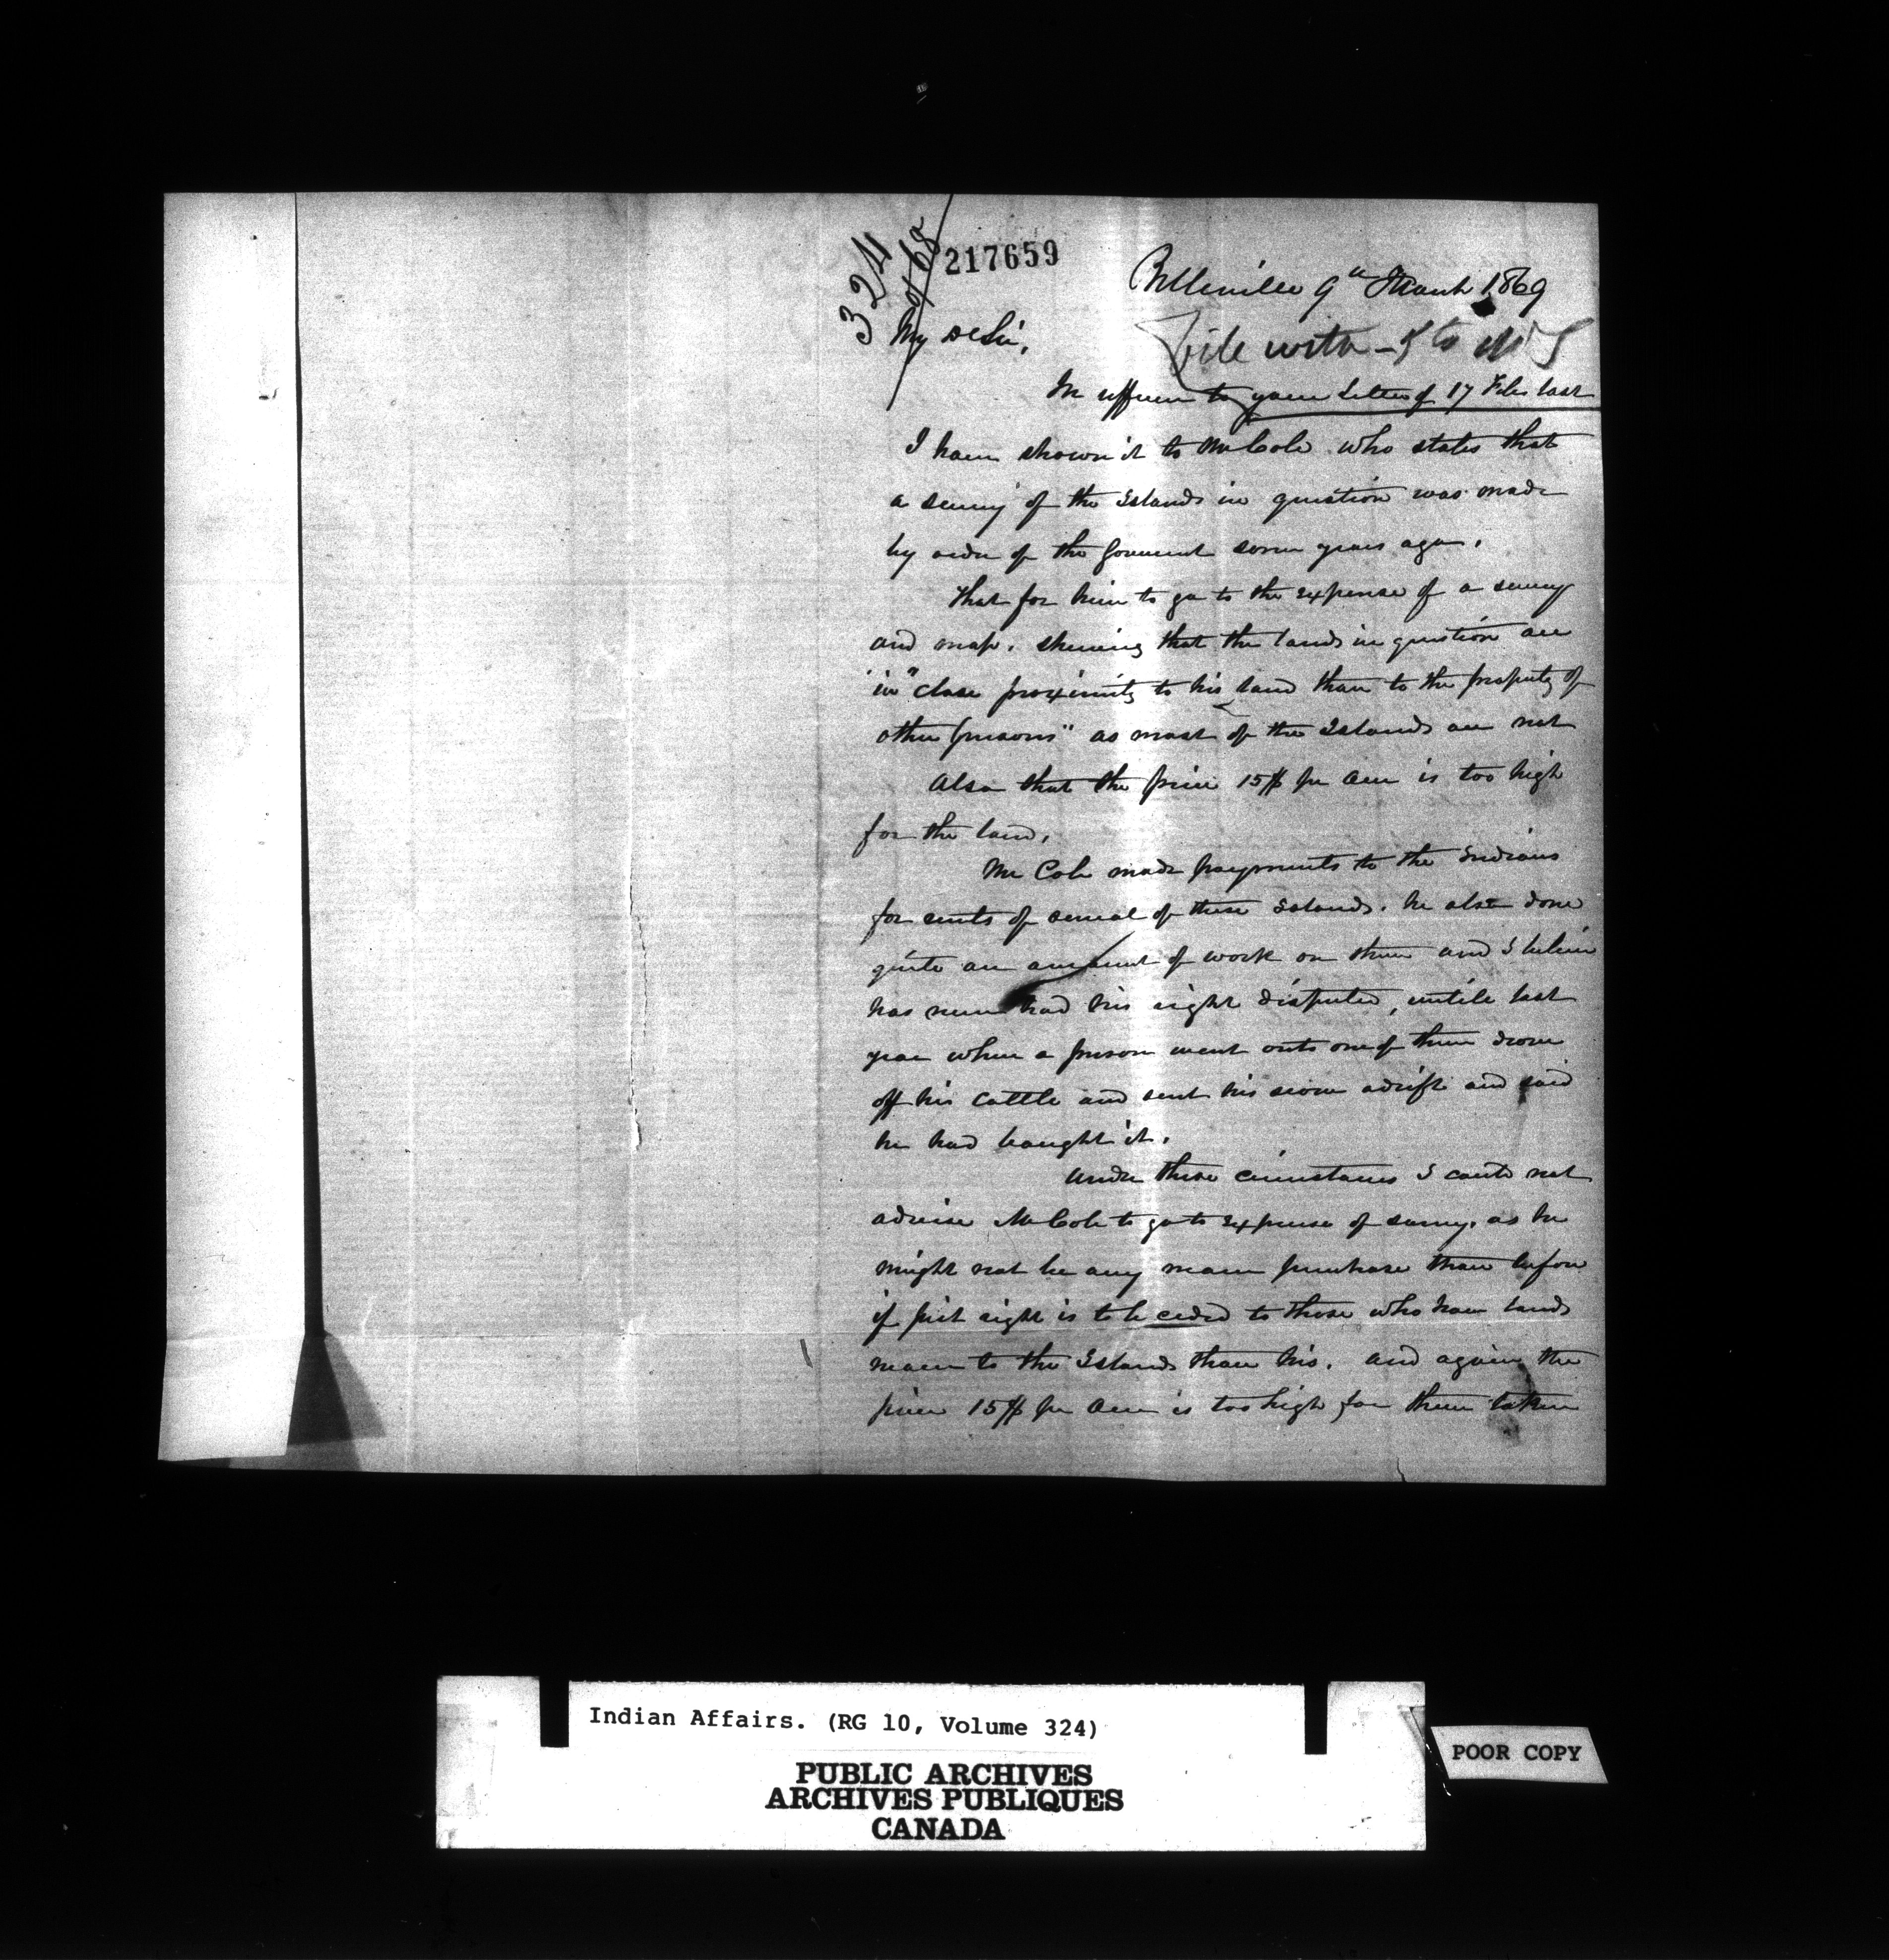 324
of 68
217659
Belleville 9th March 1869
My D Sir,
File with
In reference to your Letter of 17 Feb last
I have shown it to Mr Cole who states that
a survey of the Islands in question was made
by order of the Goverment some years ago.
That for him to go to the expense of a survey
and map. shewing that the lands in question are
"in" close proximity to his land than to the property of
other persons" as most of the Islands are not
Also that the price 15$ per Acre is too high
for the land.
Mr Cole made payments to the Indians
for rents of several of these Islands. he also done
quite an amount of work on them and I believe
has never had his right disputed, untile last
year when a person went onto one of them drove
off his Cattle and sent his scow adrift and said
he had bought it.
Under these circumstances I could not
advise Mr Cole to go to expense of survey. as he
might not be any nearer purchase than before
if first right is to be ceded to those who have lands
nearer to the Islands than his. and again the
price 15$ per Acre is too high for them taken
Indian Affairs. (RG 10, Volume 324)
PUBLIC ARCHIVES
ARCHIVES PUBLIQUES
CANADA
POOR COPY